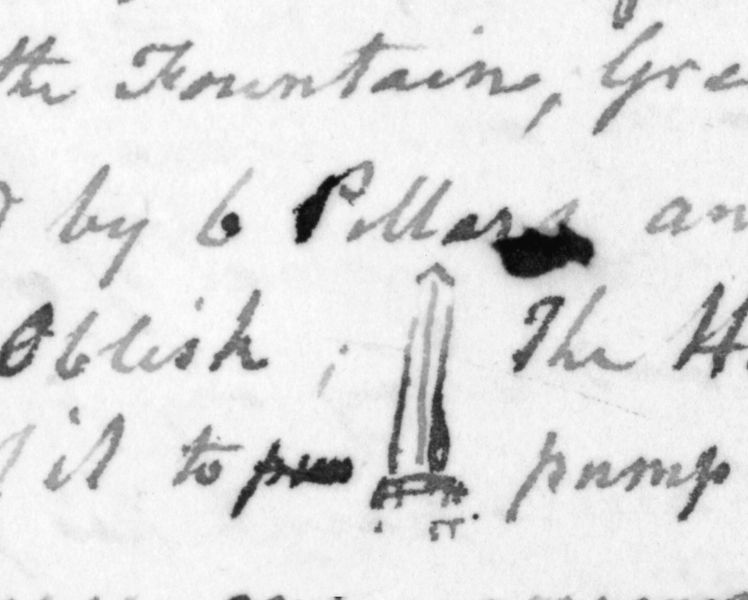 the Fountain, Gre
by 6 Pillars an
Oblisk ; The H
it to pump